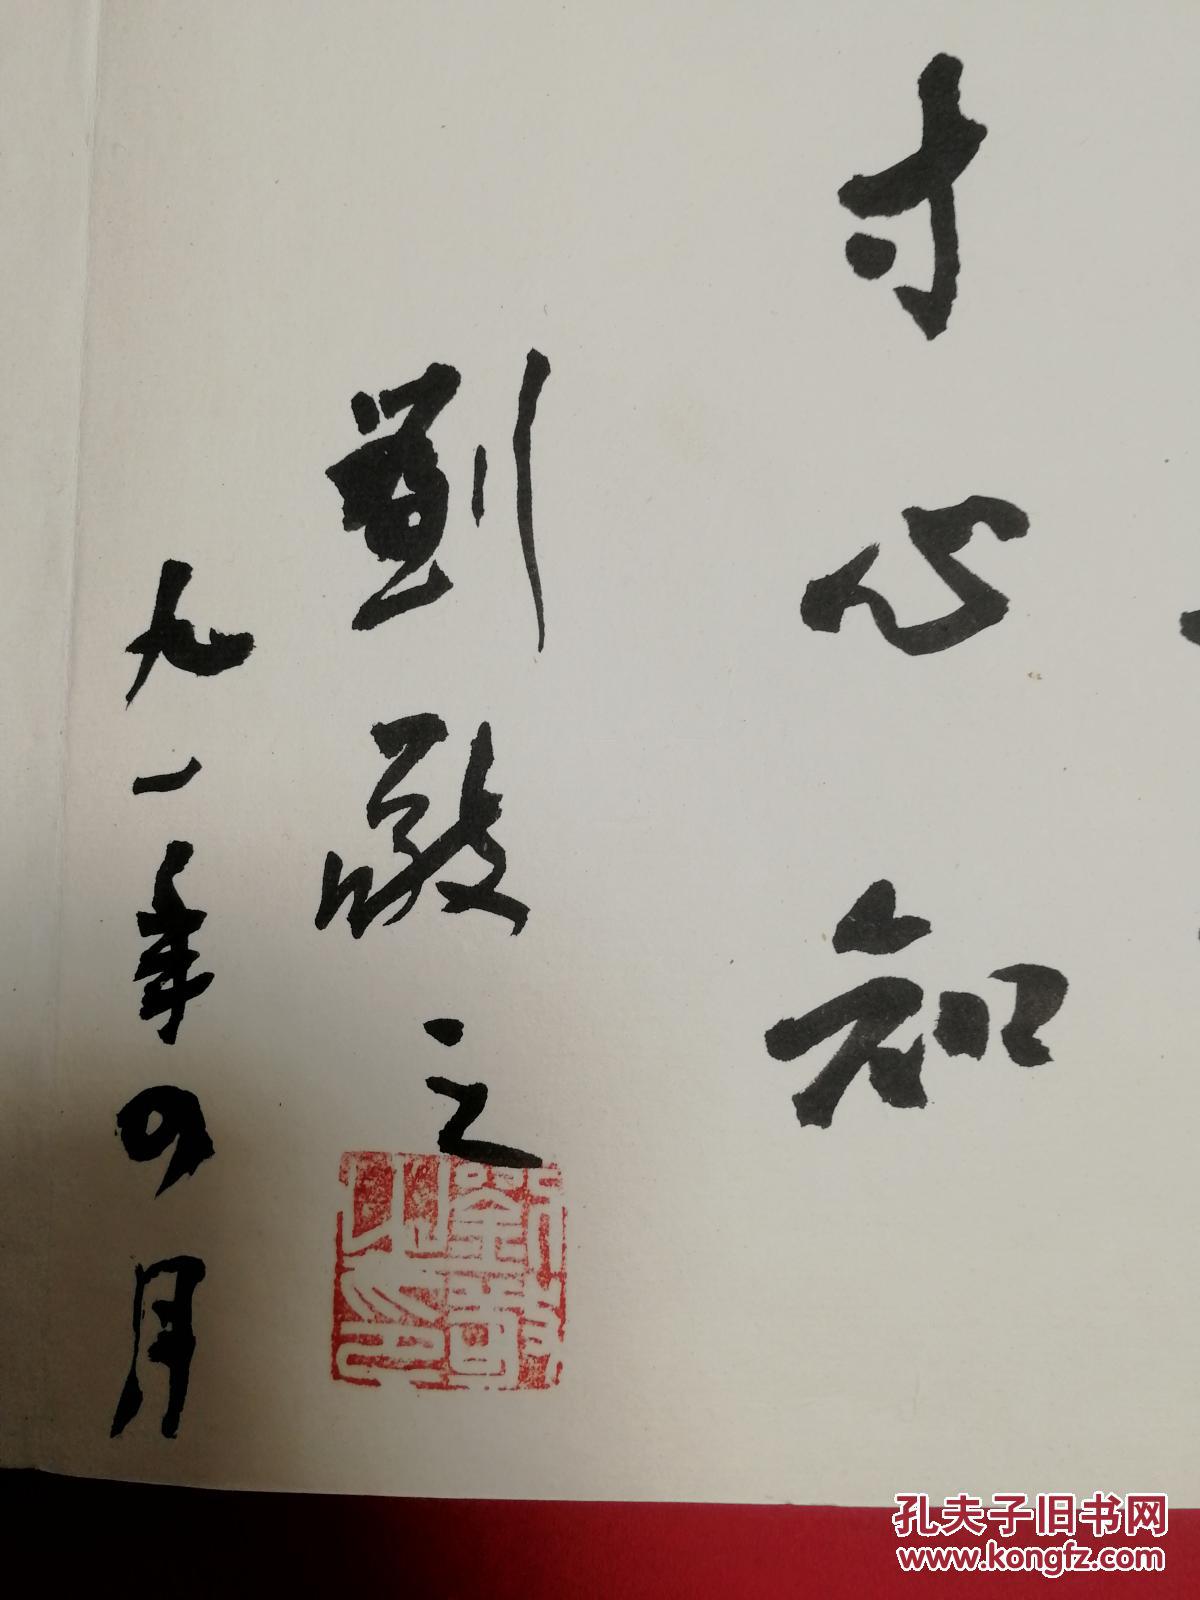 寸心知
劉敬之
九一年四月
劉敬之印
孔夫子旧书网
www.kongfz.com